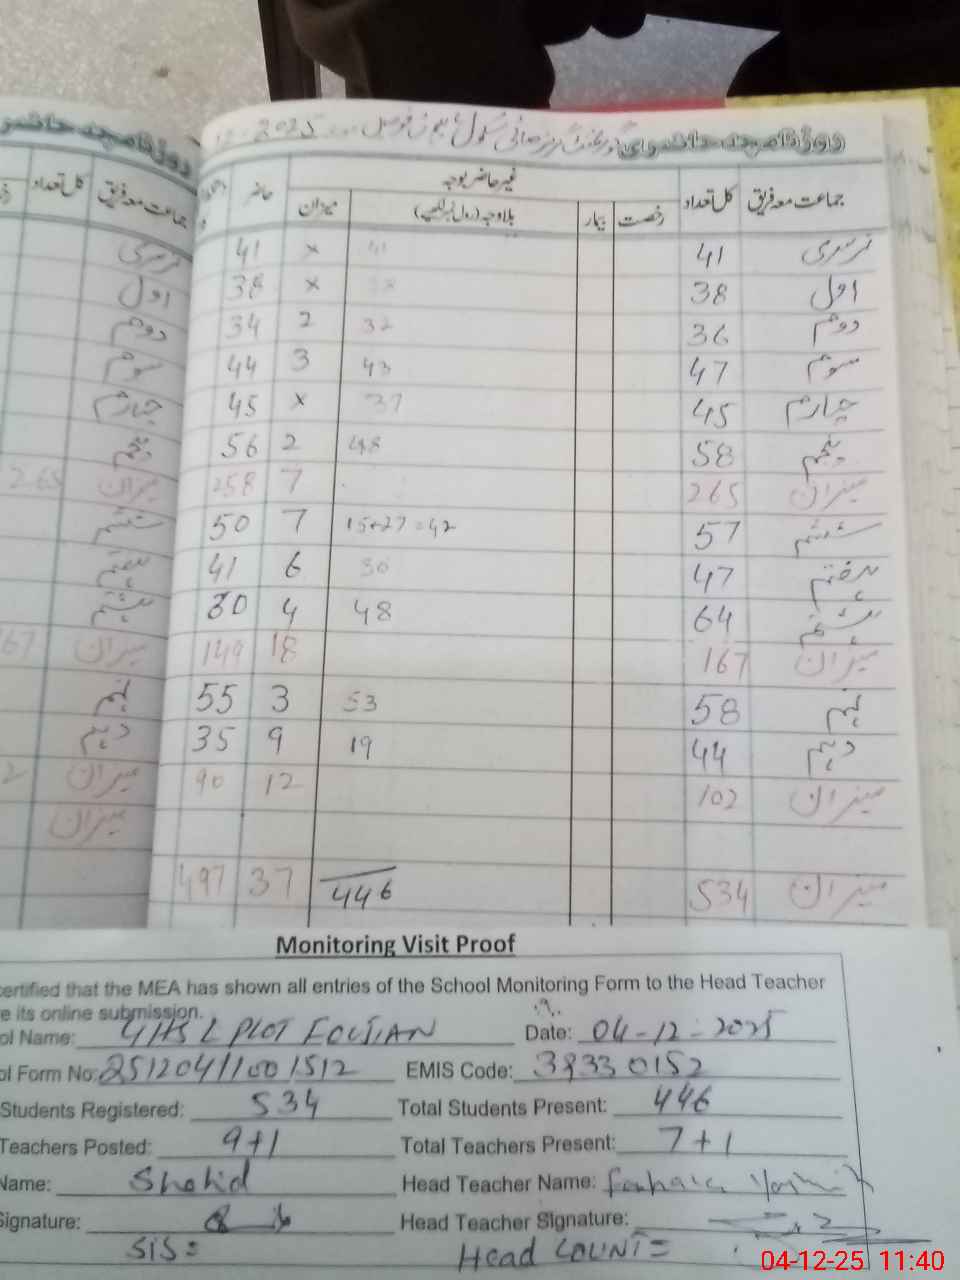 روزنامچہ حاضری گورنمنٹ 12-2025
جماعت معہ فریق کل تعداد غیر حاضر بوجہ حاضر
رخصت بیمار بلاوجہ (رول نمبر لکھیے) میزان
نرسری 41 41 × 41
اول 38 38 × 38
دوئم 36 32 2 34
سوئم 47 43 3 44
چہارم 45 37 × 45
پنجم 58 48 2 56
میزان 265 7 258
ششم 57 15+27=42 7 50
ہفتم 47 30 6 41
ہشتم 64 48 4 30
میزان 167 18 149
نہم 58 53 3 55
دہم 44 19 9 35
میزان 102 12 90
میزان 534 446 37 497
روزنامچہ حاضری
جماعت معہ فریق کل تعداد
نرسری
اول
دوئم
سوئم
چہارم
پنجم
میزان 265
ششم
ہفتم
ہشتم
میزان 167
نہم
دہم
میزان 2
میزان
Monitoring Visit Proof
certified that the MEA has shown all entries of the School Monitoring Form to the Head Teacher
e its online submission.
ol Name: GHS L PLOT FOUJIAN Date: 04-12-2025
ol Form No: 2512041001512 EMIS Code: 38330152
Students Registered: 534 Total Students Present: 446
Teachers Posted: 9+1 Total Teachers Present: 7+1
Name: Shahid Head Teacher Name:
Signature: Head Teacher Signature:
SIS= Head COUNT=
04-12-25 11:40